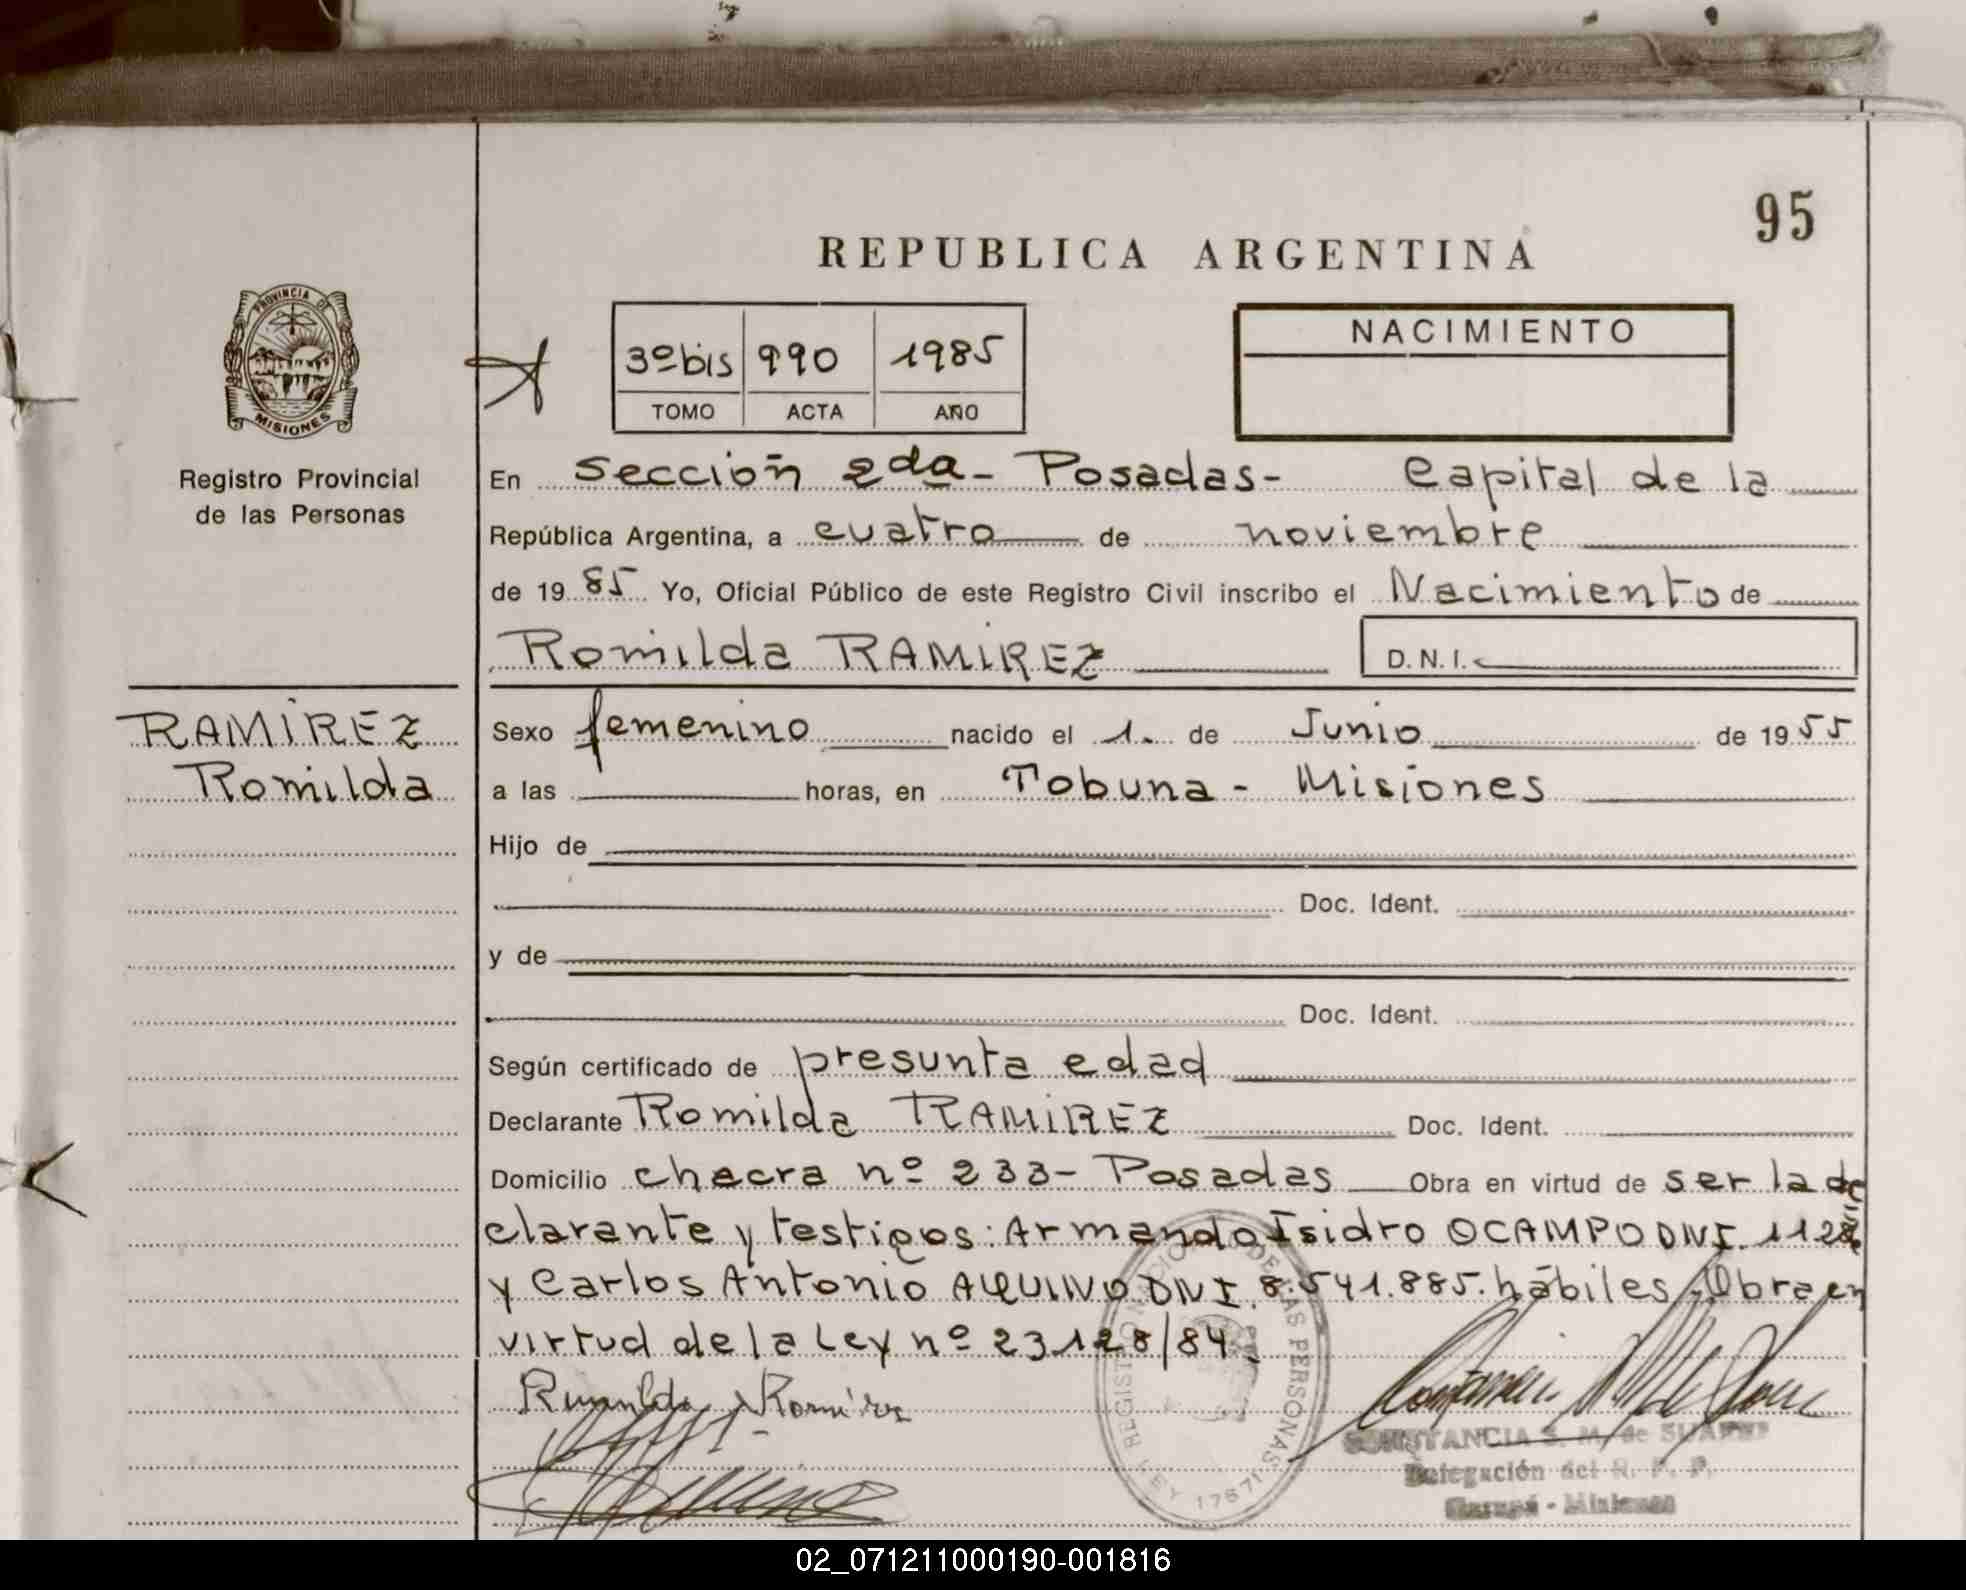 95
REPUBLICA ARGENTINA
PROVINCIA DE
MISIONES
Registro Provincial
de las Personas
3º bis 990 1985
TOMO ACTA AÑO
NACIMIENTO
En Sección 2da - Posadas - Capital de la
República Argentina, a cuatro de noviembre
de 19 85 Yo, Oficial Público de este Registro Civil inscribo el Nacimiento de
Romilda RAMIREZ D.N.I.
RAMIREZ
Romilda
Sexo femenino nacido el 1. de Junio de 19 55
a las horas, en Tobuna - Misiones
Hijo de
Doc. Ident.
y de
Doc. Ident.
Según certificado de presunta edad
Declarante Romilda RAMIREZ Doc. Ident.
Domicilio chacra nº 233 - Posadas Obra en virtud de ser la de
clarante y testigos: Armando Isidro OCAMPO DNI.
y Carlos Antonio AQUINO DNI. 8.541.885. hábiles. Obra en
virtud de la Ley nº 23.128/84.
REGISTRO NACIONAL DE LAS PERSONAS
LEY 17671
CONSTANCIA S. M. de SUAREZ
Delegación del R. P. P.
Garupá - Misiones
02_071211000190-001816